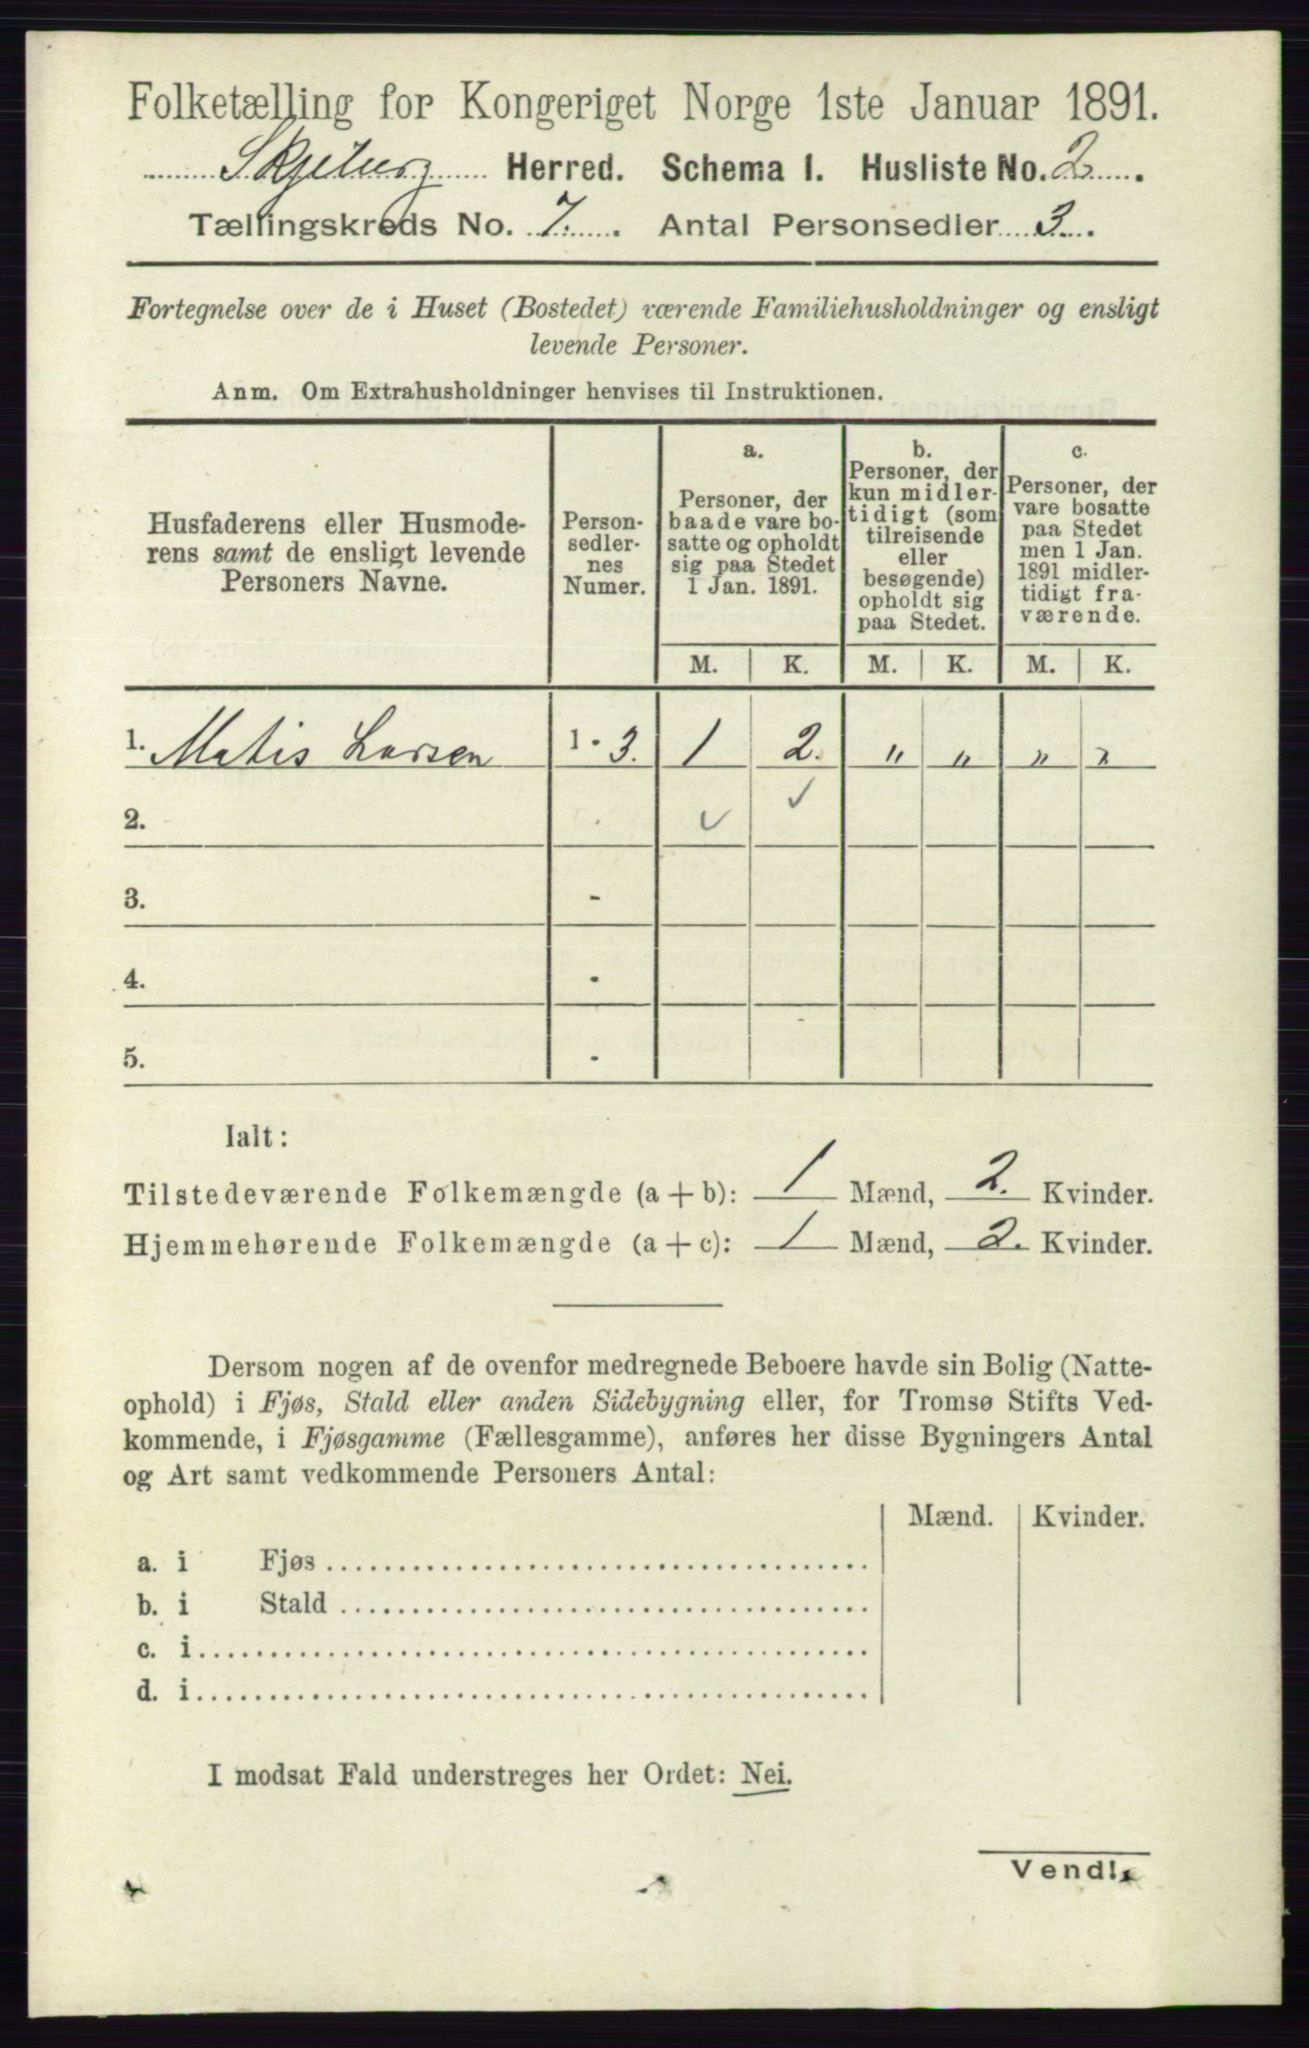 Folketælling for Kongeriget Norge 1ste Januar 1891.
Skjeberg Herred. Schema 1. Husliste No. 2.
Tællingskreds No. 7. Antal Personsedler 3.
Fortegnelse over de i Huset (Bostedet) værende Familiehusholdninger og ensligt
levende Personer.
Anm. Om Extrahusholdninger henvises til Instruktionen.
Husfaderens eller Husmode-
rens samt de ensligt levende
Personers Navne.
Person-
sedler-
nes
Numer.
a.
Personer, der
baade vare bo-
satte og opholdt
sig paa Stedet
1 Jan. 1891.
b.
Personer, der
kun midler-
tidigt (som
tilreisende
eller
besøgende)
opholdt sig
paa Stedet.
c.
Personer, der
vare bosatte
paa Stedet
men 1 Jan.
1891 midler-
tidigt fra-
værende.
M. K. M. K. M. K.
1. Matis Larsen 1 - 3. 1 2. " " " "
2. ✓ ✓
3. -
4. -
5. -
Ialt:
Tilstedeværende Folkemængde (a + b): 1 Mænd, 2. Kvinder.
Hjemmehørende Folkemængde (a + c): 1 Mænd, 2. Kvinder.
Dersom nogen af de ovenfor medregnede Beboere havde sin Bolig (Natte-
ophold) i Fjøs, Stald eller anden Sidebygning eller, for Tromsø Stifts Ved-
kommende, i Fjøsgamme (Fællesgamme), anføres her disse Bygningers Antal
og Art samt vedkommende Personers Antal:
Mænd. Kvinder.
a. i Fjøs
b. i Stald
c. i
d. i
I modsat Fald understreges her Ordet: Nei.
Vend!